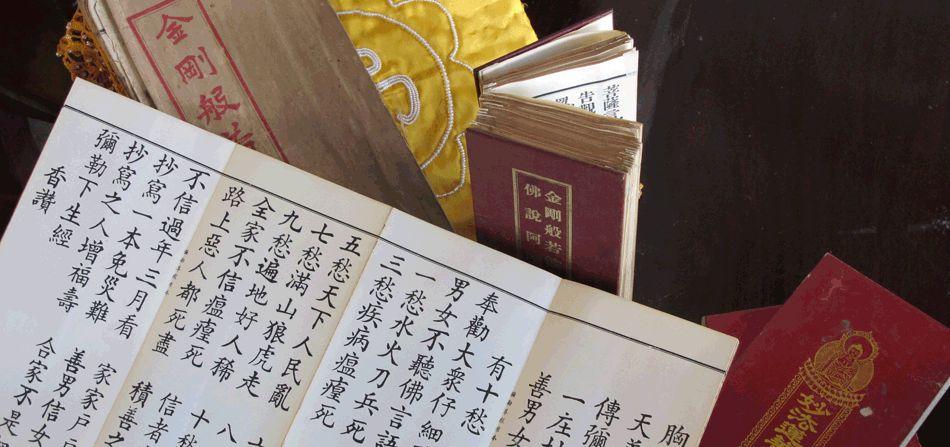 金剛般
菩薩
告觀
金剛般若
佛說阿
妙法蓮華
胸
天
傳彌
一庄
善男女
有十愁
奉勸大眾仔細
男女不聽佛言語
一愁水火刀兵死
三愁疾病瘟㾮死
五愁天下人民亂
七愁滿山狼虎走 八
九愁遍地好人稀 十愁
全家不信瘟㾮死 信者
路上惡人都死盡 積善之
不信過年三月看
抄寫一本免災難 家家戶
抄寫之人增福壽 善男信女
彌勒下生經 合家不是
香讚